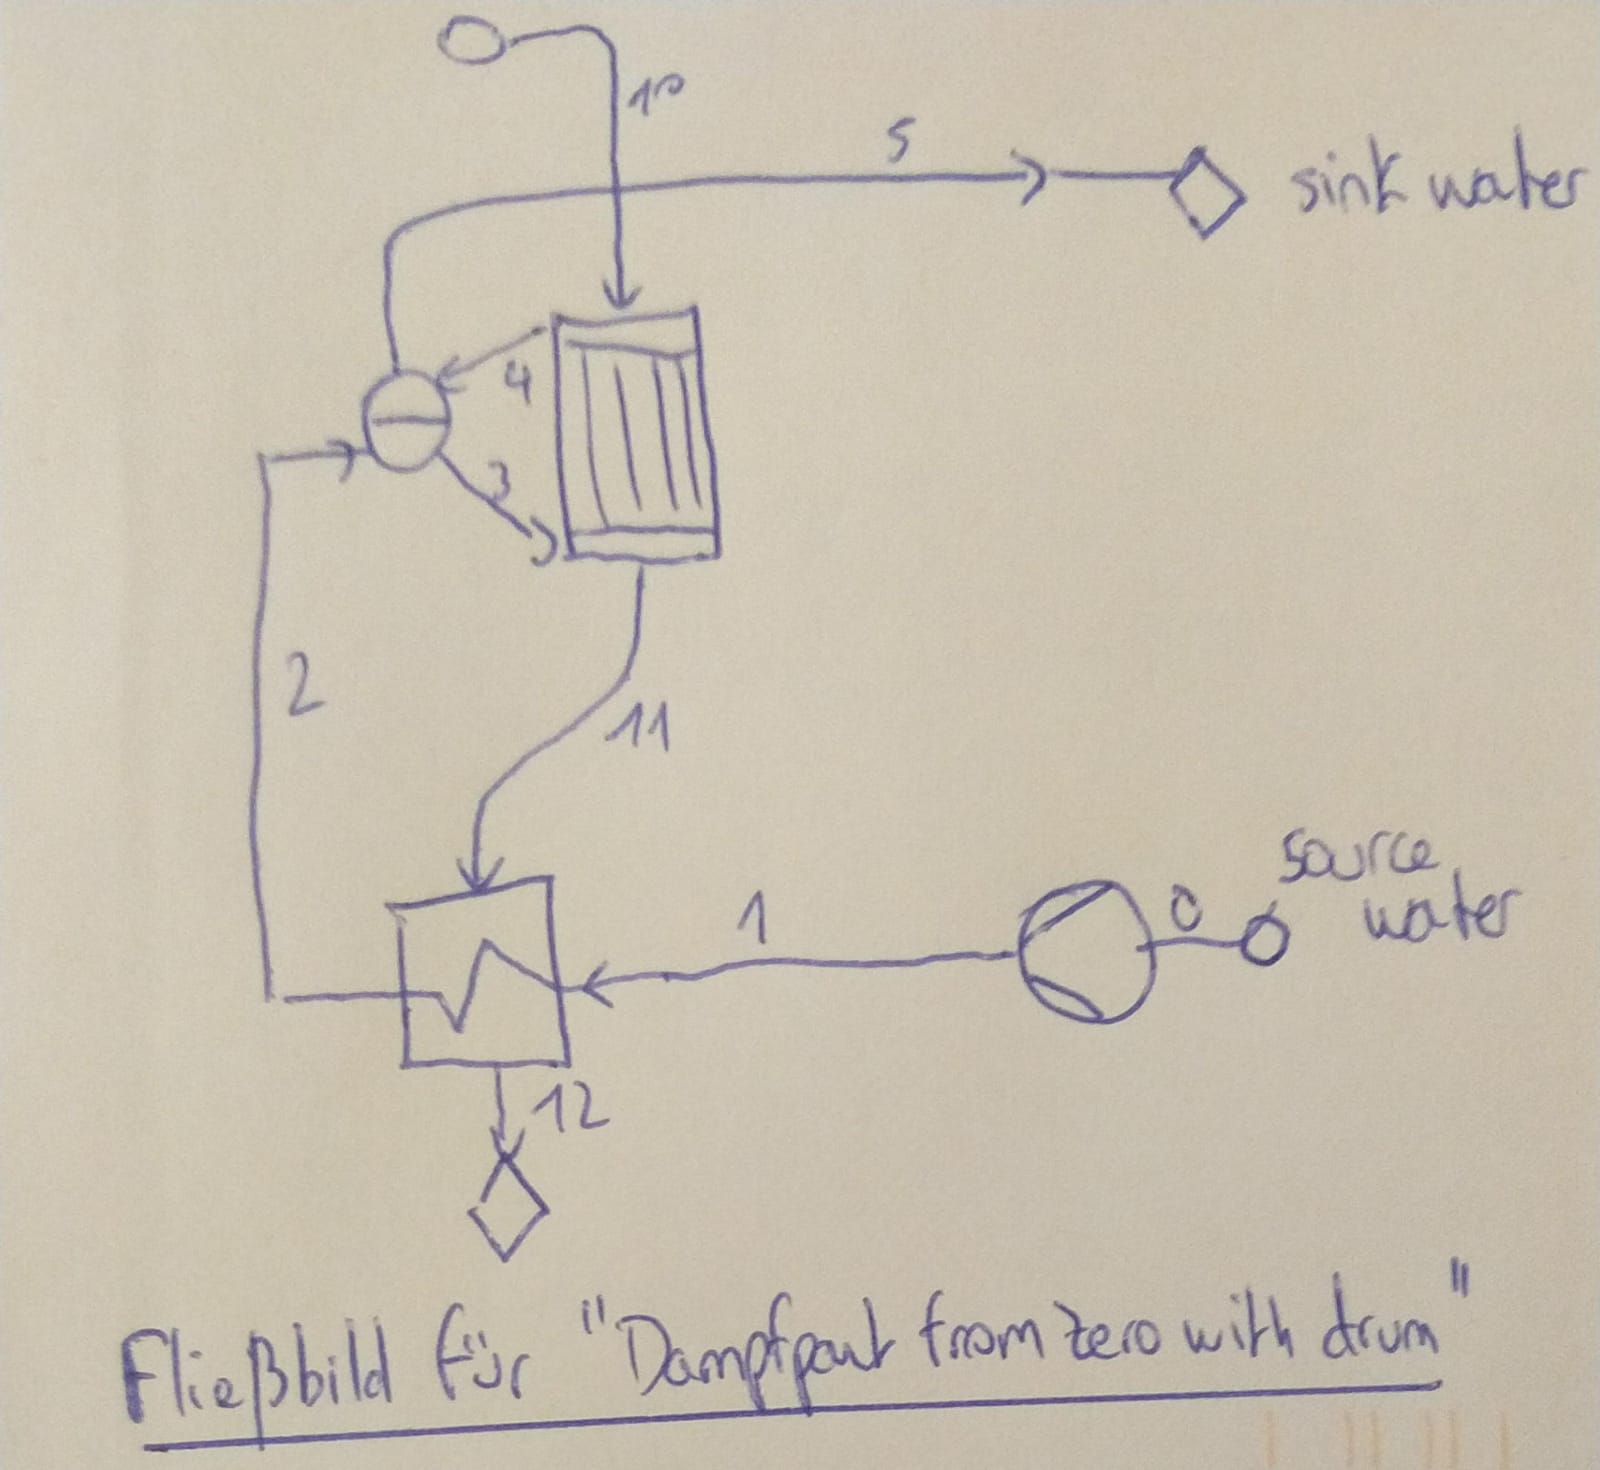 10
5
sink water
4
3
2
11
source
water
1
0
12
Fließbild für "Dampfpart from zero with drum"